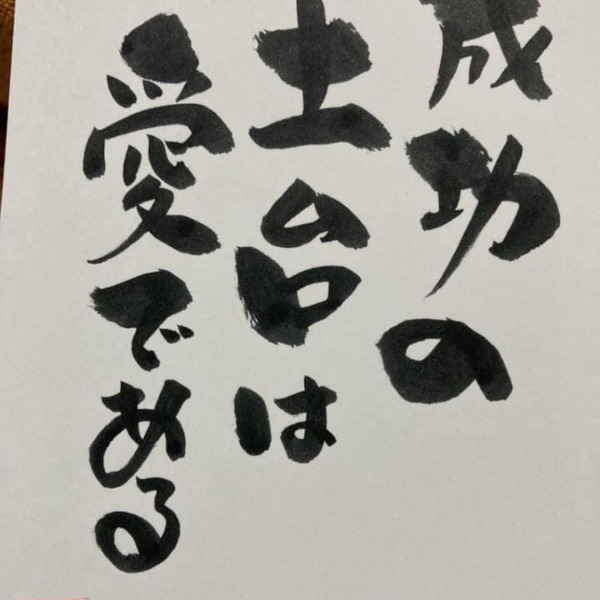 成功の
土台は
愛である